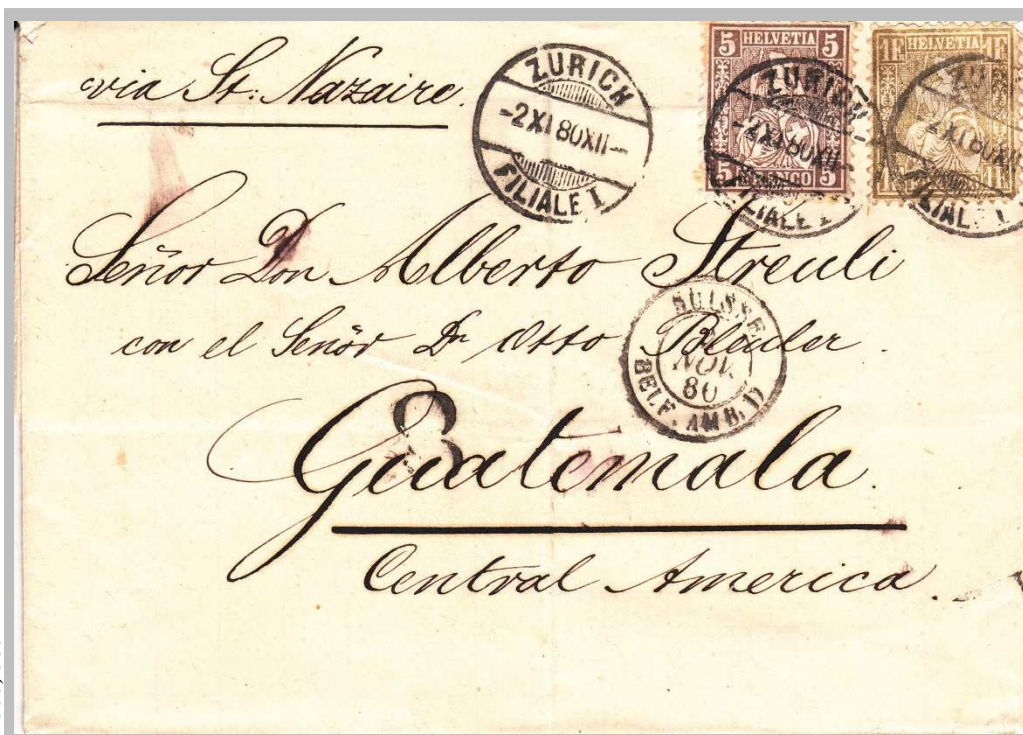 via St. Nazaire.
ZURICH
-2 XI 80 XII-
FILIALE I
5 HELVETIA 5
5 FRANCO 5
ZURICH
-2 XI 80 XII-
FILIALE I
1F HELVETIA 1F
ZURICH
-2 XI 80 XII
FILIALE I
Señor Don Alberto Streuli
con el Señor Dn Otto
SUISSE
NOV
80
BELF. AMB. D
8
Guatemala.
Central America.